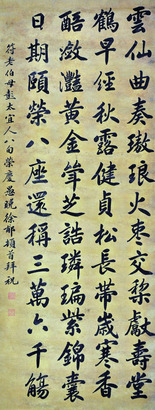 雲仙曲奏璈琅火棗交棃獻壽堂
鶴早經秋露健貞松長帶歲寒香
醅瀲灩黃金斝芝誥璘㻞紫錦囊
日期頤榮八座還稱三萬六千觴
符老伯母彭太宜人八旬榮慶愚晚徐郙頓首拜祝